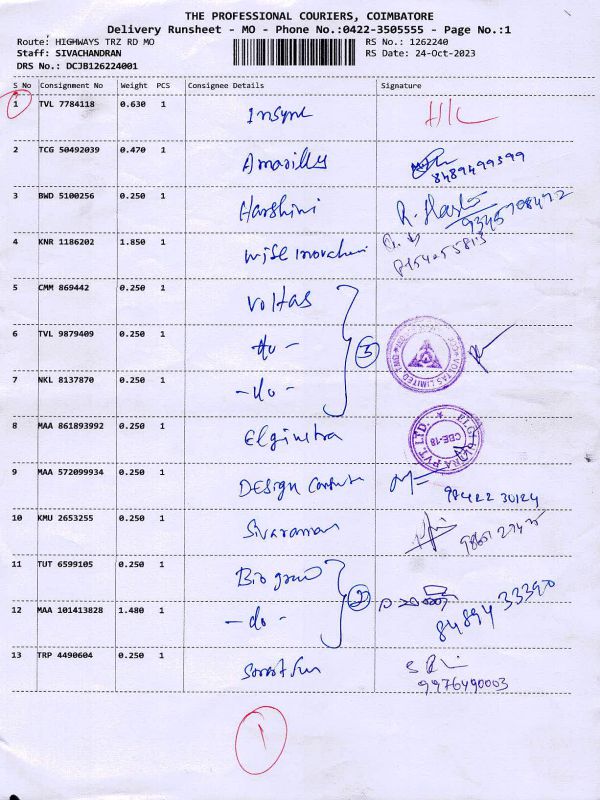 THE PROFESSIONAL COURIERS, COIMBATORE
Delivery Runsheet - MO - Phone No.:0422-3505555 - Page No.:1
Route: HIGHWAYS TRZ RD MO RS No.: 1262240
Staff: SIVACHANDRAN RS Date: 24-Oct-2023
DRS No.: DCJB126224001
S No Consignment No Weight PCS Consignee Details Signature
1 TVL 7784118 0.630 1 Insync
2 TCG 50492039 0.470 1 Amarilly 8489499399
3 BWD 5100256 0.250 1 Harshini
4 KNR 1186202 1.850 1
5 CMM 869442 0.250 1 Voltas
6 TVL 9879409 0.250 1 - do - 3 VOLTAS LIMITED
7 NKL 8137870 0.250 1 - do -
8 MAA 861893992 0.250 1 Elginultra CBE-18 PVT. LTD.
9 MAA 572099934 0.250 1 Design 98422 30124
10 KMU 2653255 0.250 1 Sivaraman
11 TUT 6599105 0.250 1 Bio 2
12 MAA 101413828 1.480 1 - do - 84894 33390
13 TRP 4490604 0.250 1
9976490003
1